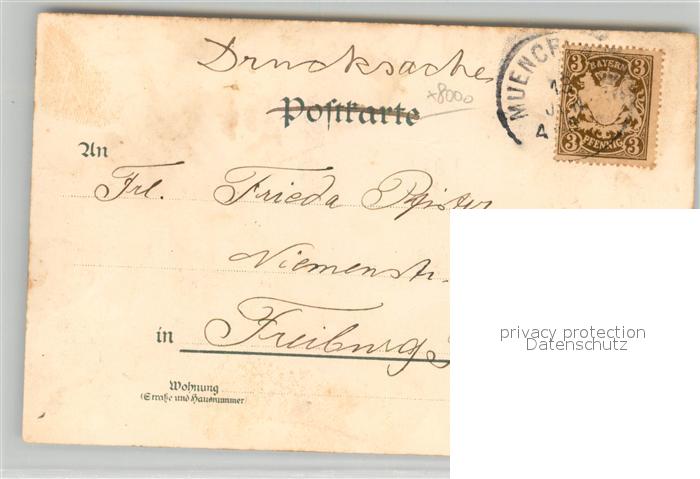 Drucksache
Postkarte
×8000
MUENCH
3 BAYERN 3
3 PFENNIG 3
An
Frl. Frieda Pfister
Niemenstr.
in Freiburg
Wohnung
(Straße und Hausnummer)
privacy protection
Datenschutz